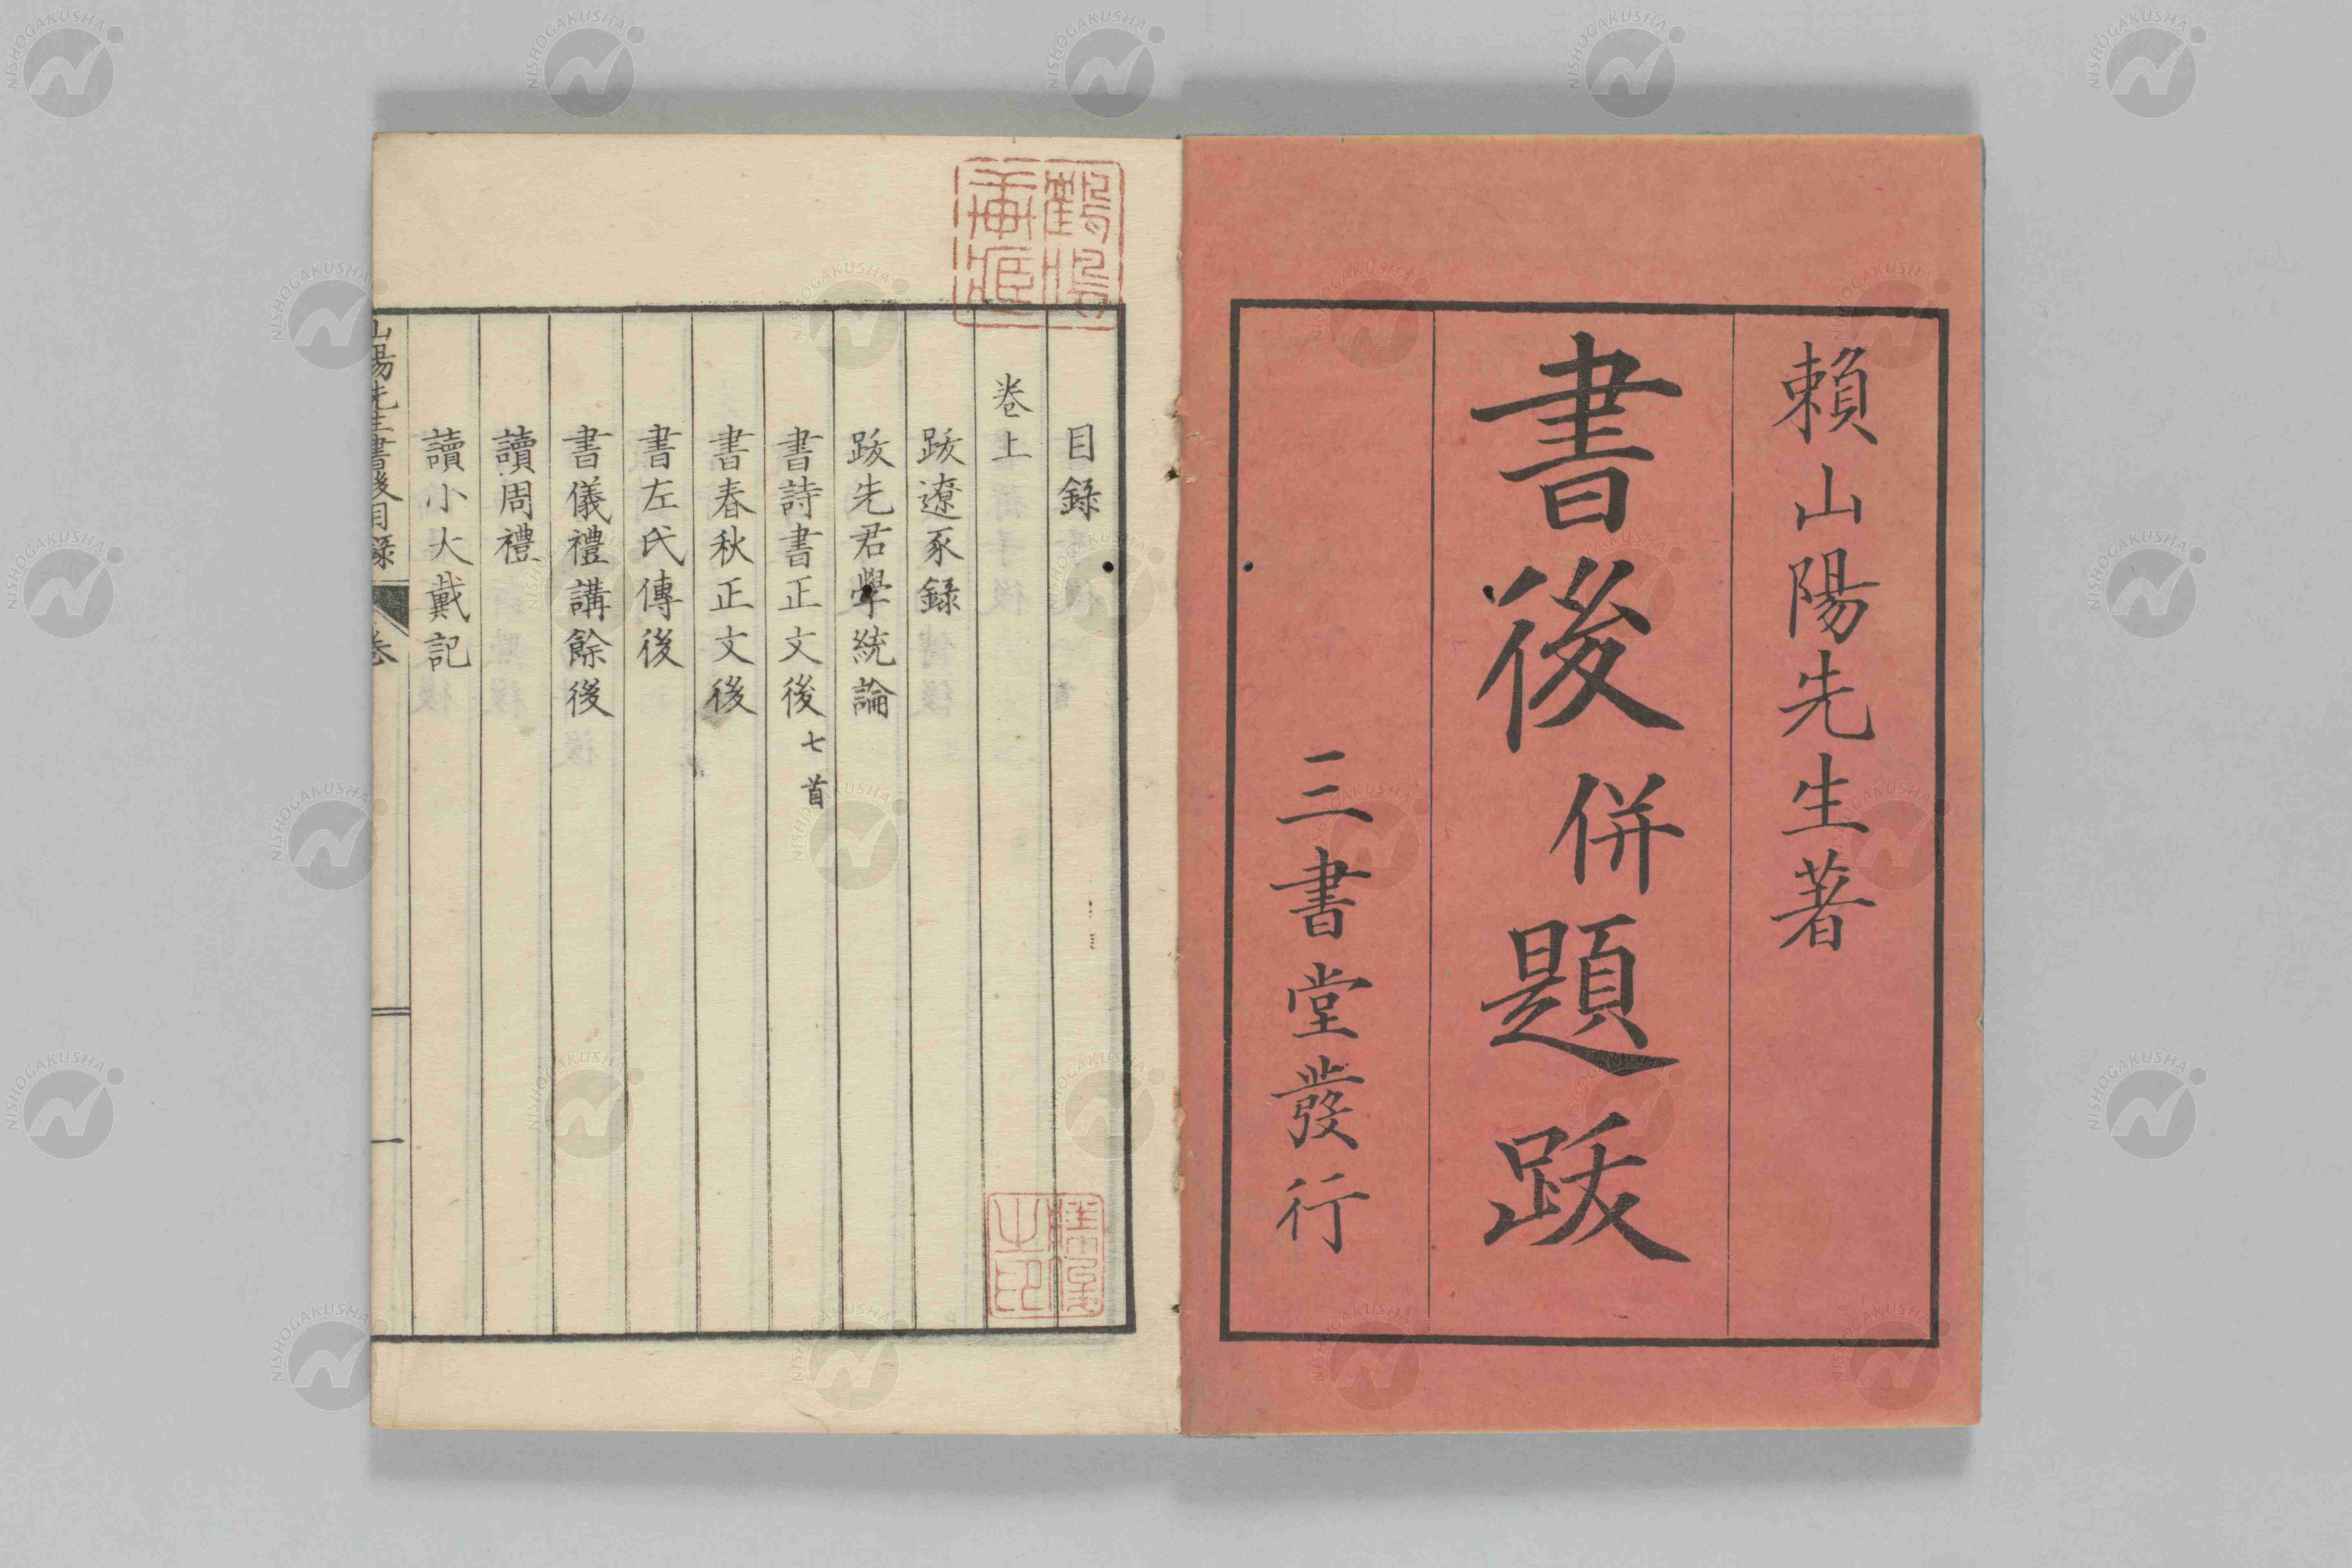 賴山陽先生著
書後併題跋
三書堂發行
目錄
卷上
跋遼豕錄
跋先君學統論
書詩書正文後 七首
書春秋正文後
書左氏傳後
書儀禮講餘後
讀周禮
讀小大戴記
山陽先生書後目錄 卷 一
NISHOGAKUSHA